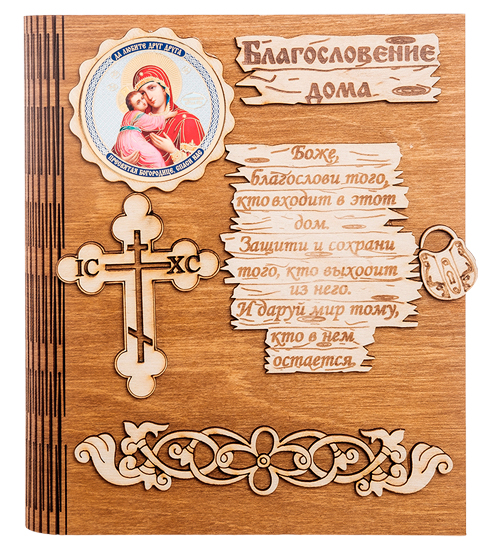 ДА ЛЮБИТЕ ДРУГ ДРУГА
ПРЕСВЯТАЯ БОГОРОДИЦЕ, СПАСИ НАС
Благословение
дома
Боже,
благослови того,
кто входит в этот
дом.
Защити и сохрани
того, кто выходит
из него.
И даруй мир тому,
кто в нем
остается.
IC XC